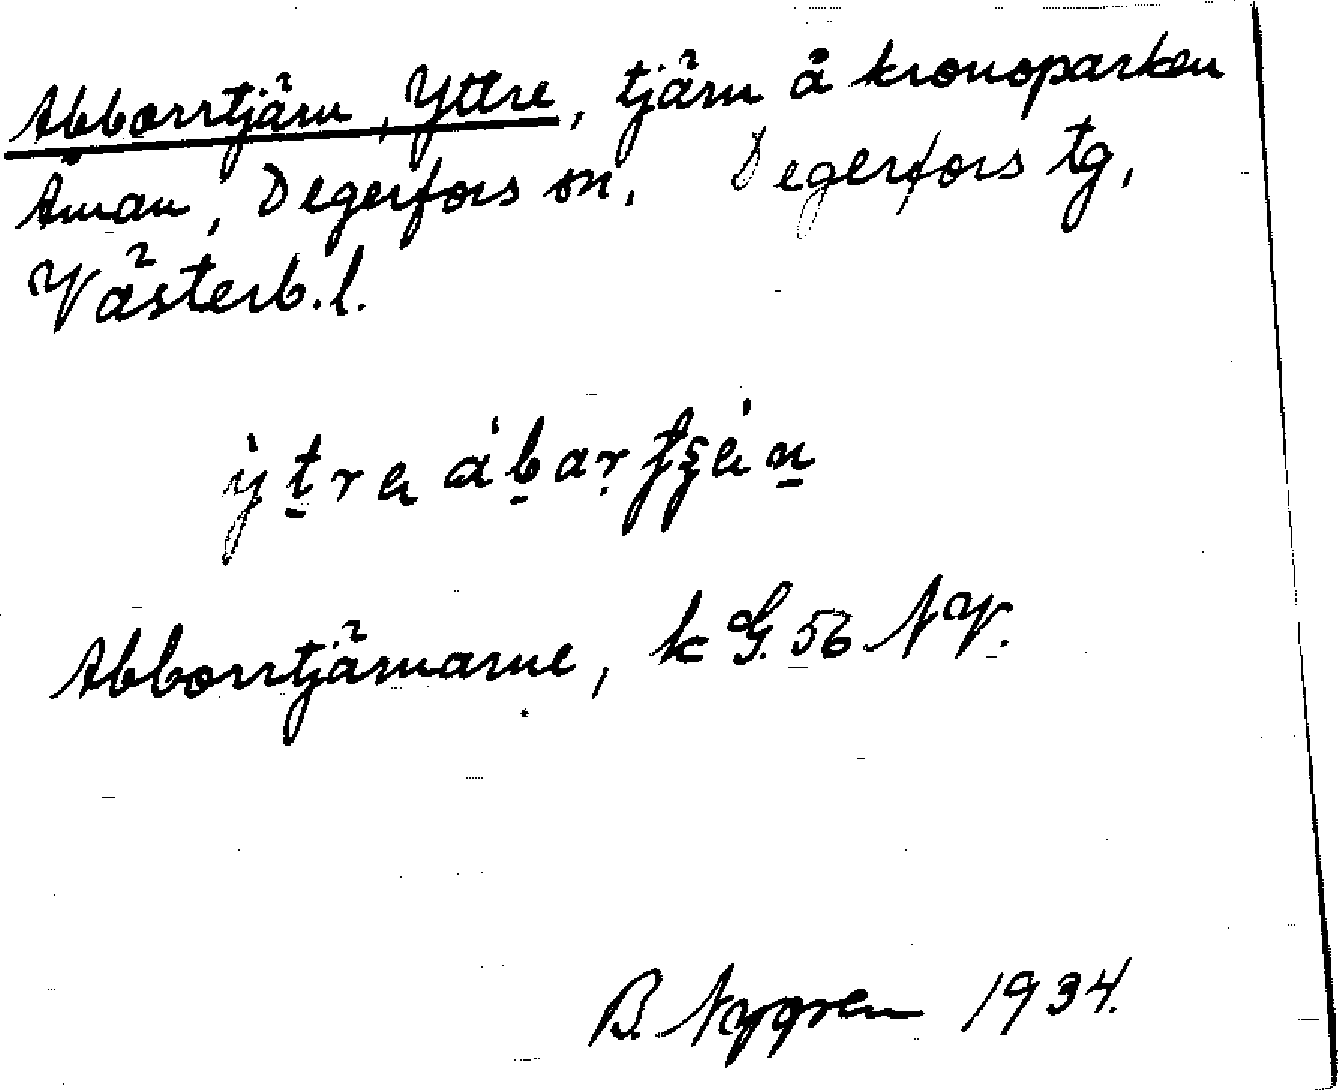 Abborrtjärn, Yttre, tjärn å kronoparken
Åman, Degerfors sn, Degerfors tg,
Västerb.l.
Abborrtjärnarne, k G. 56 NV.
B. Nygren 1934.